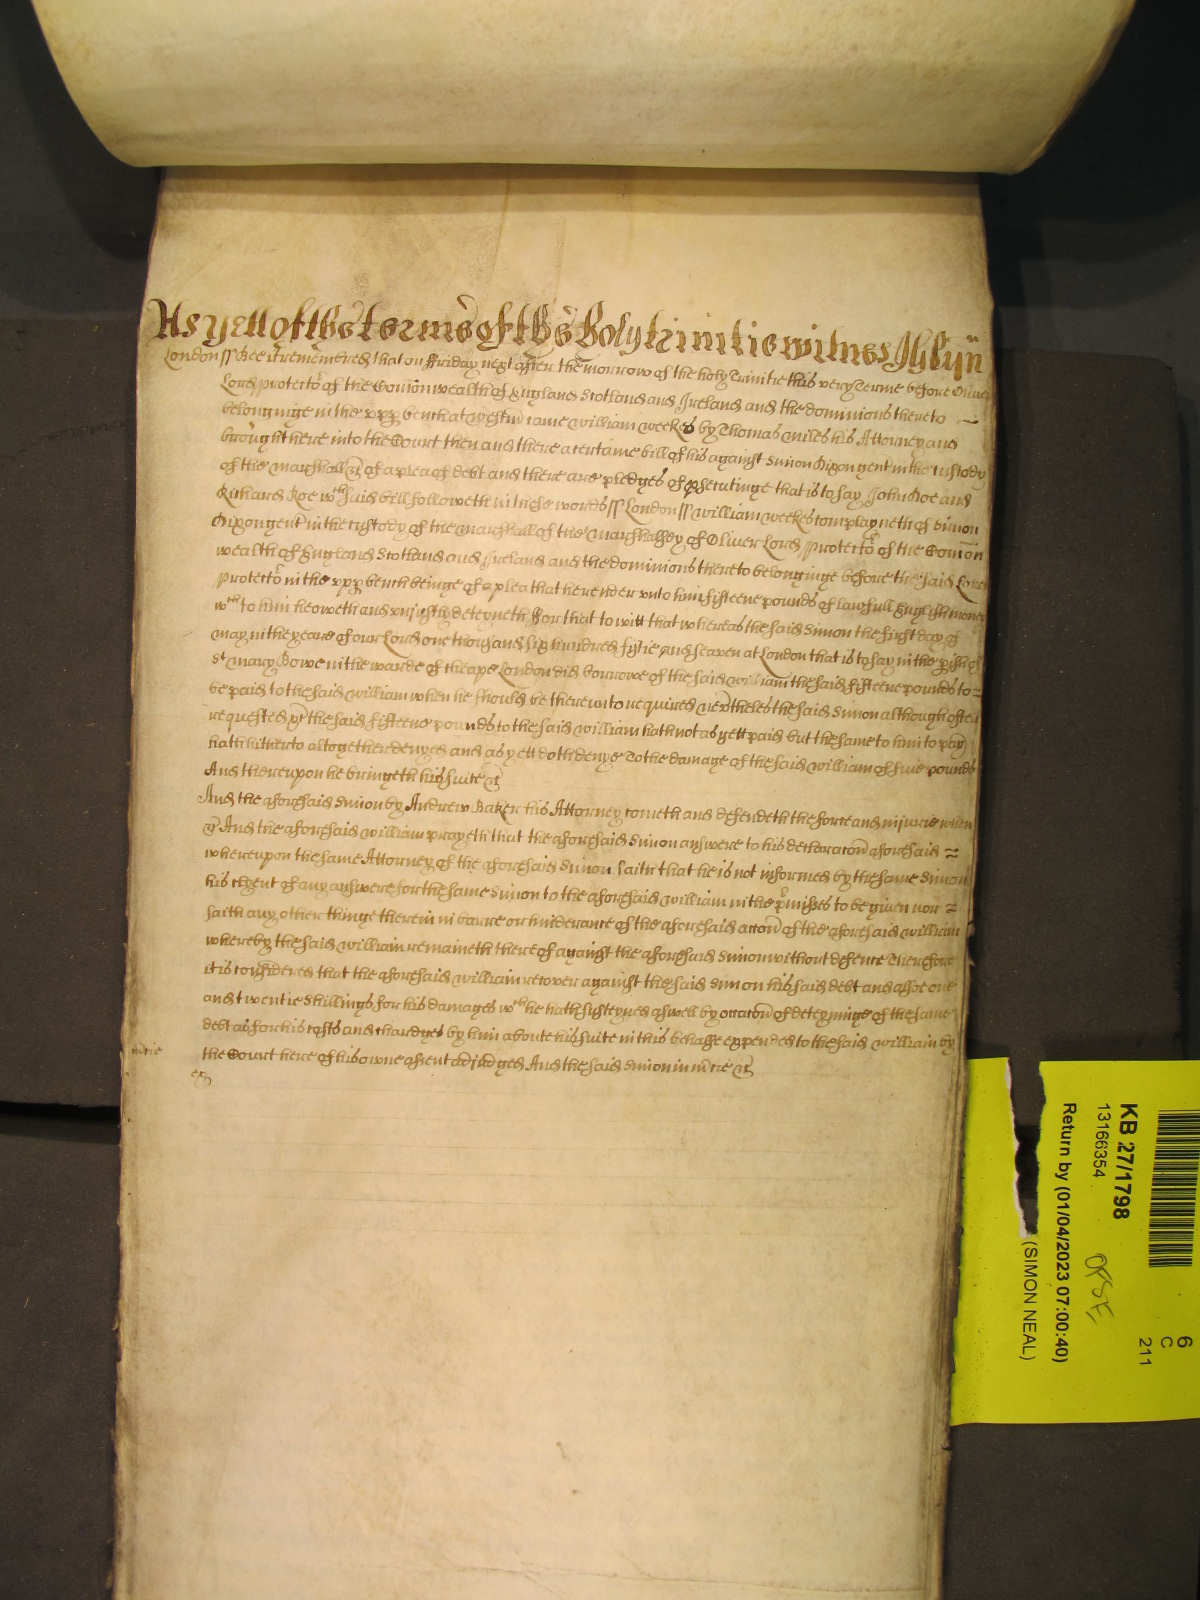 As yett of the terme of the holy trinitie witnes Glynn
London ss Bee it remembred that on ffriday next after the morrow of the holy Trinitie this very Terme before Oliver
Lord protector of the Comonwealth of England Scotland and Ireland and the dominions thereto
belonginge in the upp bench at westm came william weekes by Thomas miles his Attorney and
brought here into the Court then and there a certaine bill of his against Simon Dixon gent in the custody
of the marshall &c of a plea of debt and there are pledges of psecutinge that is to say John Doe and
Richard Roe wch said bill followeth in these words ss London ss william weekes complayneth of Simon
Dixon gent in the custody of the marshall of the marshalsey of Oliver Lord protector of the Comon
wealth of England Scotland and Ireland and the dominions thereto belonginge before the said Lord
protector in the upp bench beinge of a plea that he render unto him fifteene pounds of lawfull English money
wch to him he oweth and unjustly deteyneth ffor that to witt that whereas the said Simon the first day of
may in the yeare of our Lord one thousand six hundred fiftie and seaven at London that is to say in the pish of
St mary Bowe in the warde of Cheape London did borrowe of the said william the said fifteene pounds to =
be paid to the said william when he should be thereunto required nevtheles the said Simon although often
requested &c the said fifteene pounds to the said william hath not as yett paid but the same to him to pay
hath hitherto altogether denyed and as yett doth denye To the damage of the said william of five pounds
And thereupon he bringeth his suite &c
And the aforesaid Simon by Andrew Baker his Attorney cometh and defendeth the force and injurie when
&c And the aforesaid william prayeth that the aforesaid Simon answere to his declaracon aforesaid =
whereupon the same Attorney of the aforesaid Simon saith that he is not informed by the same Simon
his clyent of any answere for the same Simon to the aforesaid william in the pmisses to be given nor =
saith any other thinge therein in barre or hinderance of the aforesaid accon of the aforesaid william
whereby the said william remaineth thereof against the aforesaid Simon without defence Therefore
it is considered that the aforesaid william recover against the said Simon his said debt and alsoe one
and twentie shillings for his damages wch he hath susteyned aswell by occacon of deteyninge of the same
debt as for his costs and chardges by him aboute his suite in this behalfe expended to the said william by
the Court here of his owne assent adjudged And the said Simon in mcie &c
mcie
KB 27/1798
13166354
Return by (01/04/2023 07:00:40)
(SIMON NEAL)
6
C
211